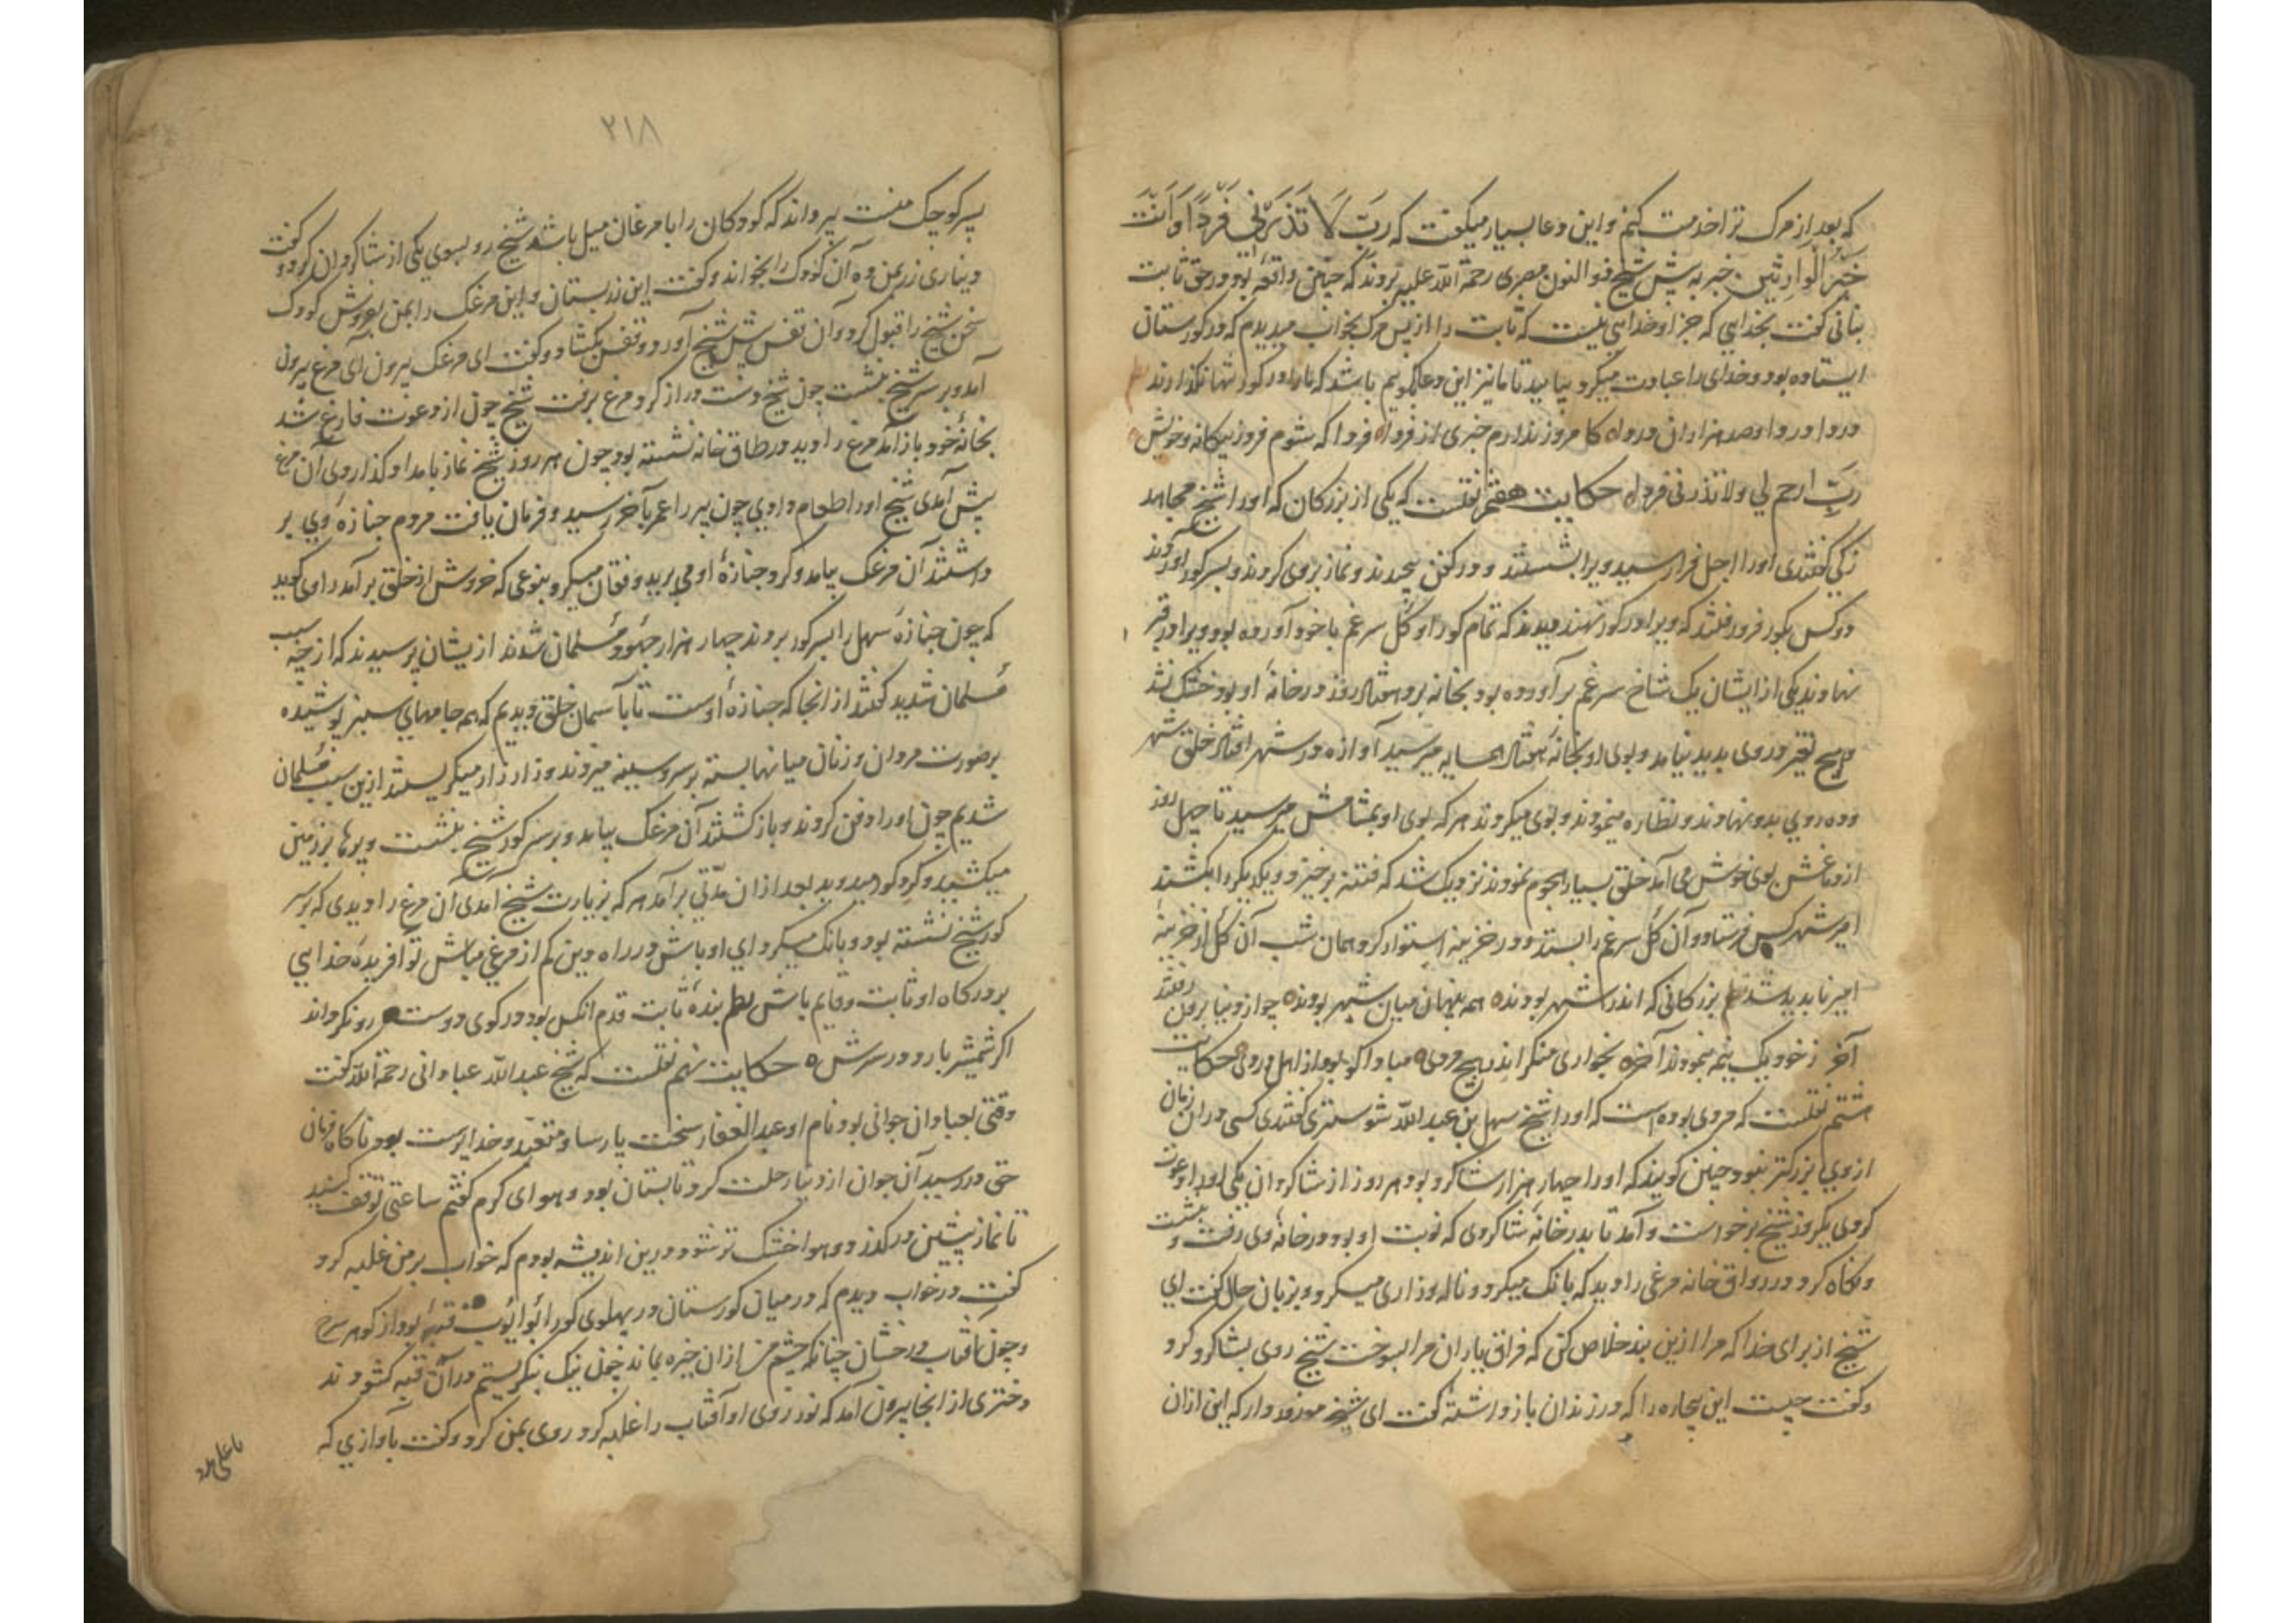 که بعد از مرک ترا خدمت کنم و این دعا بسیار میکفت که رَبِّ لَا تَذَرْنِی فَرْدًا وَاَنْتَ
خَیْرُ الْوَارِثِین خبر به پیش شیخ ذو النون مصری رحمة الله علیه بردند که چنین واقعه بود در حق ثابت
بنانی کفت بخدایی که جز او خدایی نیست که ثابت را از پس مرک بخواب میدیدم که در کورستان
ایستاده بود و خدای را عبادت میکرد بیایید تا ما نیز این دعا کوییم باشد که ما را در کور تنها نکذارند
دردا و دردا و صد هزاران درداه کامروز ندارم خبری از فرداه فردا که شوم فرد ز بیکانه و خویش
رَبِّ ارحم لی ولا تذرنی فرداه حکایت هفتم نقلست که یکی از بزرکان که او را شیخ مجاهد
زکی کفتندی او را اجل فراز رسید ویرا بشستند و در کفن پیچیدند و نماز بر وی کردند و بسر کور آوردند
دو کس بکور فرو رفتند که ویرا در کور نهند دیدند که تمام کور او کل سرغم با خود آورده بود ویرا در قبر
نهادند یکی از ایشان یک شاخ سرغم بر آورده بود بخانه برد هفتاد روز در خانه او بود خشک نشد
و هیچ تغیر در وی بدید نیامد و بوی او بخانه هفتاد همسایه میرسید آوازه در شهر افتاد خلق شهر
و ده روی بدو نهادند و نظاره مینمودند و بوی میکردند هر که بوی او بمشامش میرسید تا چهل روز
از دماغش بوی خوش می آمد خلق بسیار هجوم نمودند نزدیک شد که فتنه برخیزد و یکدیکر را بکشند
امیر شهر کس فرستاد و آن کل سرغم را بستد و در خزینه استوار کرد همان شب آن کل از خزینه
امیر نابدید شد بزرکانی که اندر شهر بودنده همه پنهان میان شهر بودنده چو از دنیا برون رفتند
آخر ز خود یک نیم نمودند آخره بخواری منکر اندر هیچ مردی مبادا کو بود از اهل دردی حکایت
هشتم نقلست که مردی بوده است که او را شیخ سهل بن عبد الله شوستری کفتندی کسی در آن زمان
از وی بزرکتر نبود چنین کویند که او را چهار هزار شاکرد بود هر روز از شاکردان یکی او را دعوت
کردی یکروز شیخ برخواست و آمد تا بدر خانه شاکردی که نوبت او بود در خانه وی رفت و بنشست
و نکاه کرد در رواق خانه مرغی را دید که بانک میکرد و ناله و زاری میکرد و بزبان حال کفت ای
شیخ از برای خدا که مرا ازین بند خلاص کن که فراق یاران مرا بسوخت شیخ روی بشاکرد کرد
و کفت چیست این بیچاره را که در زندان باز داشته کفت ای شیخ معذور دار که این از آن
۲۱۸
پسر کوچک منست پرواند که کودکان را با مرغان میل باشد شیخ رو بسوی یکی از شاکردان کرد و کفت
دیناری زر بمن ده آن کودک را بخواند و کفت این زر بستان و این مرغک را بمن بفروش کودک
سخن شیخ را قبول کرد و آن قفس پیش شیخ آورد و قفس بکشاد و کفت ای مرغک بیرون آی مرغ بیرون
آمد و بر سر شیخ بنشست چون شیخ دست دراز کرد مرغ برفت شیخ چون از دعوت فارغ شد
بخانه خود باز آمد مرغ را دید در طاق خانه نشسته بود چون هر روز شیخ نماز بامداد کذاردی آن مرغ
پیش آمدی شیخ او را طعام دادی چون پیر را عمر بآخر رسید و فرمان یافت مردم جنازه وی بر
داشتند آن مرغک بیامد و کرد جنازه او می پرید و فغان میکرد بنوعی که خروش از خلق بر آمد راوی کوید
که چون جنازه سهل را بسر کور بردند چهار هزار جهود مسلمان شدند از یشان پرسیدند که از چه سبب
مسلمان شدید کفتند از انجا که جنازه اوست تا بآسمان خلق دیدیم که همه جامهای سبز پوشیده
بر صورت مردان و زنان میانها بسته بر سر و سینه میزدند و زار زار میکریستند ازین سبب مسلمان
شدیم چون او را دفن کردند و باز کشتند آن مرغک بیامد و بر سر کور شیخ بنشست و پرها بر زمین
میکشید و کرد کور میدوید بعد از آن مدتی بر آمد هر که بزیارت شیخ آمدی آن مرغ را دیدی که بر سر
کور شیخ نشسته بود و بانک میکرد ای اوباش در راه دین کم از مرغی مباش تو آفریده خدایی
بر درکاه او ثابت و قایم باش بنده ثابت قدم آنکس بود در کوی دوست رو نکرداند
اکر شمشیر بارد در سرش ه حکایت نهم نقلست که شیخ عبدالله عبادانی رحمة الله کفت
وقتی بعبادان جوانی بود نام او عبد الغفار سخت پارسا و متعبد و خدا پرست بود ناکاه فرمان
حق در رسید آن جوان از دنیا رحلت کرد تابستان بود و هوای کرم کفتم ساعتی توقف کنید
تا نماز پیشین درکذرد و هوا خنک تر شود درین اندیشه بودم که خواب بر من غلبه کرد
کفت در خواب دیدم که در میان کورستان در پهلوی کور ابو ایوب قبه بود از کوهر سرخ
و چون آفتاب درخشان چنانکه چشم من از آن خیره بماند چون نیک بنکریستم در آن قبه کشودند
دختری از انجا بیرون آمد که نور روی او آفتاب را غلبه کرد روی بمن کرد و کفت بآوازی که
یا علی مدد